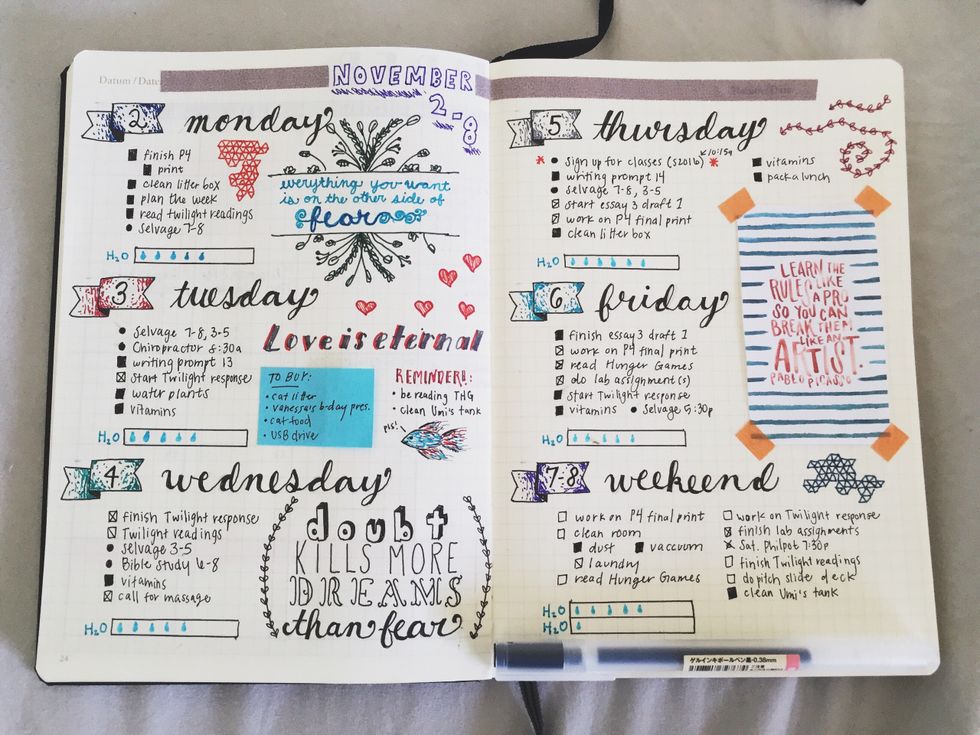 Datum / Date
NOVEMBER
2-8
2 monday
finish P4
print
clean litter box
plan the week
read twilight readings
selvage 7-8
H2O
everything you want
is on the other side of
fear
3 tuesday
Selvage 7-8, 3-5
Chiropractor 8:30a
writing prompt 13
start Twilight response
water plants
vitamins
H2O
Love is eternal
TO BUY:
cat litter
vanessa's b-day pres.
cat food
USB drive
REMINDER!!:
be reading THG
clean Umi's tank
pls!
4 wednesday
finish Twilight response
Twilight readings
selvage 3-5
Bible Study 6-8
vitamins
call for massage
H2O
doubt
KILLS MORE
DREAMS
than fear
24
5 thursday
10:15a
sign up for classes (S2016)
writing prompt 14
selvage 7-8, 3-5
start essay 3 draft 1
work on P4 final print
clean litter box
vitamins
pack a lunch
H2O
6 friday
finish essay 3 draft 1
work on P4 final print
read Hunger Games
do lab assignment(s)
start Twilight response
vitamins
selvage 5:30p
H2O
LEARN THE
RULES LIKE
A PRO
SO YOU CAN
BREAK THEM
LIKE AN
ARTIST.
PABLO PICASSO
7-8 weekend
work on P4 final print
clean room
dust
vaccuum
laundry
read Hunger Games
work on Twilight response
finish lab assignments
Sat. Philpot 7:30p
finish Twilight readings
do pitch slide deck
clean Umi's tank
H2O
H2O
ゲルインキボールペン黒・0.38mm